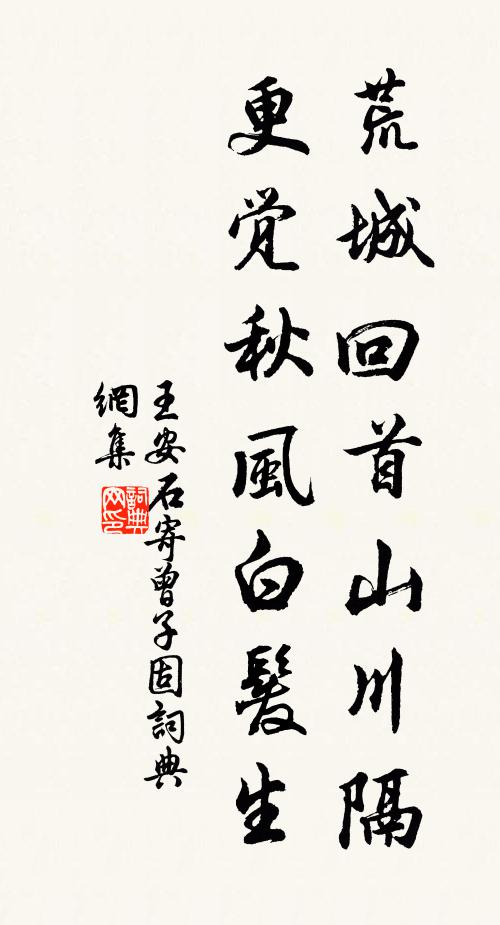 荒城回首山川隔
更覚秋風白髮生
王安石寄曾子固詞典
網集
詞典
网印